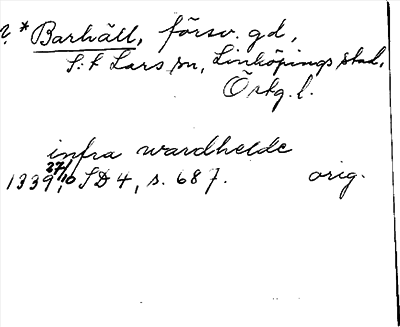 ? * Barhäll, försv. gd,
S:t Lars sn, Linköpings stad,
Östg. l.
infra wardhelde
1339 27/10 SD 4, s. 687. orig.